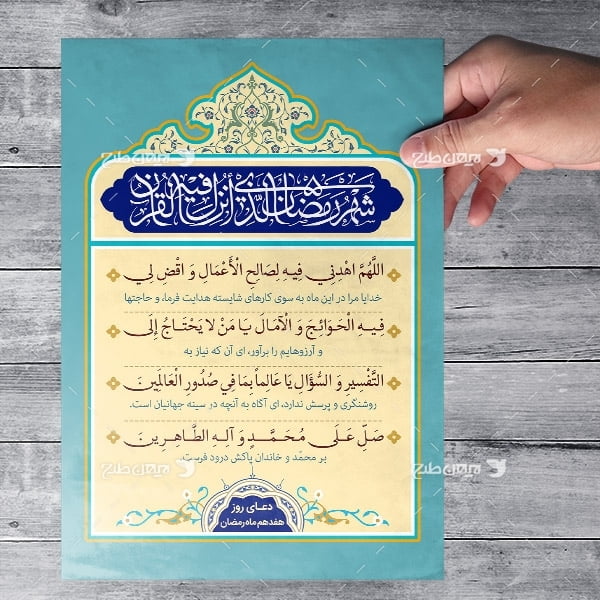 شهر رمضان الذي أنزل فيه القرآن
اللَّهُمَّ اهْدِنِي فِيهِ لِصَالِحِ الْأَعْمَالِ وَ اقْضِ لِي
خدایا مرا در این ماه به سوی کارهای شایسته هدایت فرما، و حاجتها
فِيهِ الْحَوَائِجَ وَ الْآمَالَ يَا مَنْ لا يَحْتَاجُ إِلَى
و آرزوهایم را برآور، ای آن که نیاز به
التَّفْسِيرِ وَ السُّؤَالِ يَا عَالِماً بِمَا فِي صُدُورِ الْعَالَمِينَ
روشنگری و پرسش ندارد، ای آگاه به آنچه در سینه جهانیان است.
صَلِّ عَلَى مُحَمَّدٍ وَ آلِهِ الطَّاهِرِينَ
بر محمّد و خاندان پاکش درود فرست.
دعای روز
هفدهم ماه رمضان
میهن طرح
میهن طرح
میهن طرح
میهن طرح